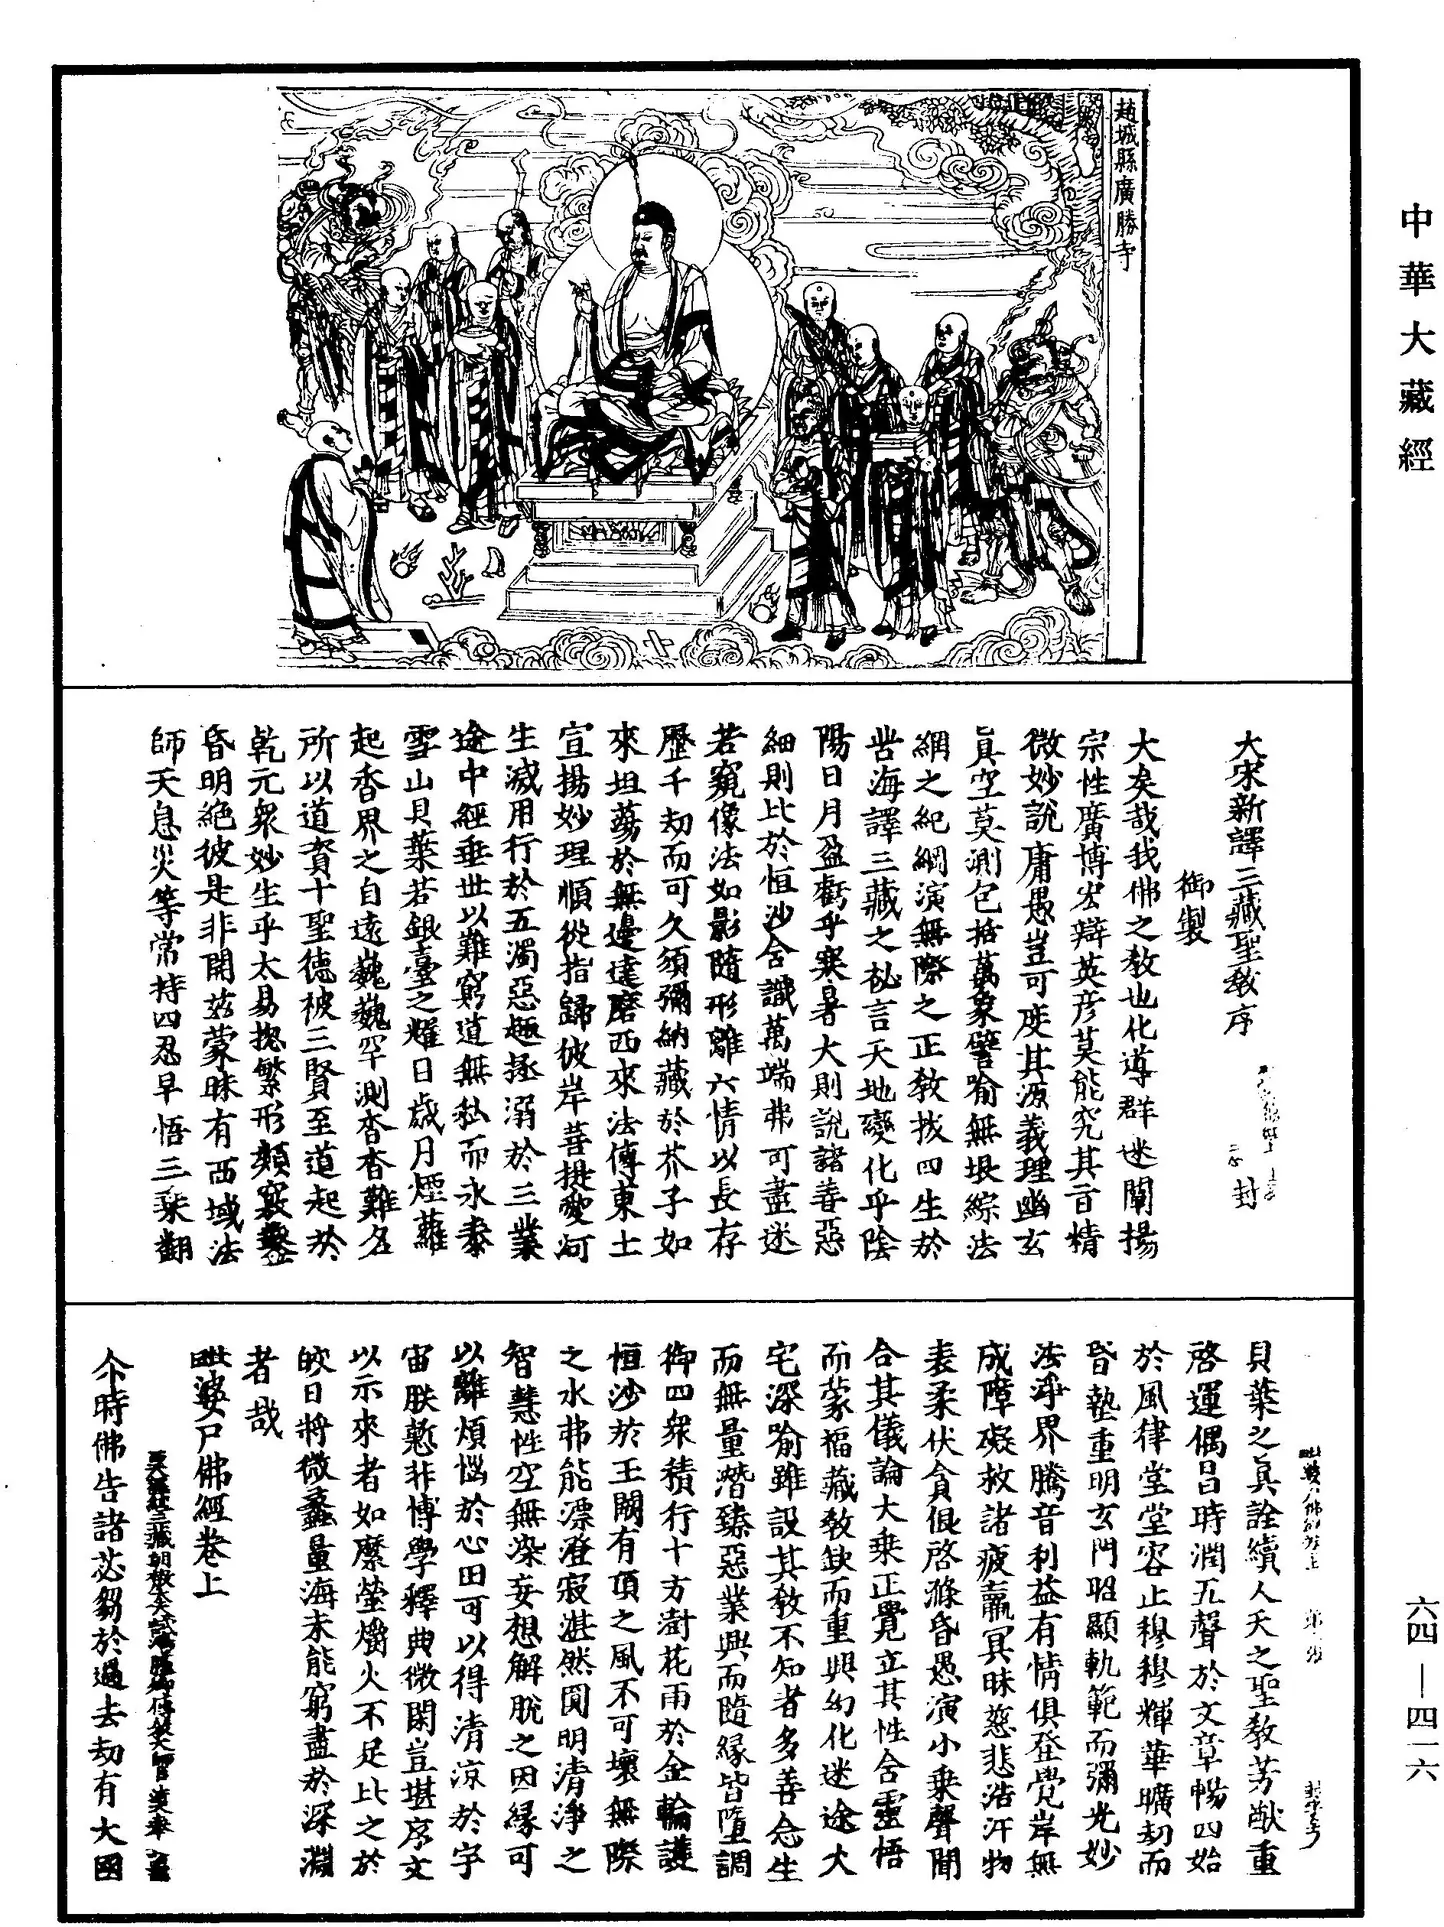 中華大藏經
六四—四一六
趙城縣廣勝寺
大宋新譯三藏聖教序
封
御製
大矣哉我佛之教也化導群迷闡揚
宗性廣博宏辯英彥莫能究其旨精
微妙說庸愚豈可度其源義理幽玄
真空莫測包括萬象譬喻無垠綜法
網之紀綱演無際之正教拔四生於
苦海譯三藏之祕言天地變化乎陰
陽日月盈虧乎寒暑大則說諸善惡
細則比於恒沙含識萬端弗可盡述
若窺像法如影隨形離六情以長存
歷千劫而可久須彌納藏於芥子如
來坦蕩於無邊達磨西來法傳東土
宣揚妙理順從指歸彼岸菩提愛河
生滅用行於五濁惡趣拯溺於三業
途中經垂世以難窮道無私而永泰
雪山貝葉若銀臺之耀日歲月煙蘿
起香界之自遠巍巍罕測杳杳難名
所以道資十聖德被三賢至道起於
乾元眾妙生乎太易揔繁形類竅鑿
昏明絕彼是非開茲蒙昧有西域法
師天息災等常持四忍早悟三乘翻
貝葉之真詮續人天之聖教芳猷重
啓運偶昌時潤五聲於文章暢四始
於風律堂堂容止穆穆輝華曠劫而
昏墊重明玄門昭顯軌範而彌光妙
法淨界騰音利益有情俱登覺岸無
成障礙救諸疲羸冥昧慈悲浩汗物
表柔伏貪佷啓滌昏愚演小乘聲聞
合其儀論大乘正覺立其性含靈悟
而蒙福藏教缺而重興幻化迷途大
宅深喻雖設其教不知者多善念生
而無量潛臻惡業興而隨緣皆墮調
御四眾積行十方澍花雨於金輪護
恒沙於玉闕有頂之風不可壞無際
之水弗能漂澄寂湛然圓明清淨之
智慧性空無染妄想解脫之因緣可
以離煩惱於心田可以得清涼於宇
宙朕慙非博學釋典微閑豈堪序文
以示來者如縻螢爝火不足比之於
皎日將微蠡量海未能窮盡於深淵
者哉
毗婆尸佛經卷上
西天譯經三藏朝散大夫試鴻臚卿傳教大師
尒時佛告諸苾芻於過去劫有大國